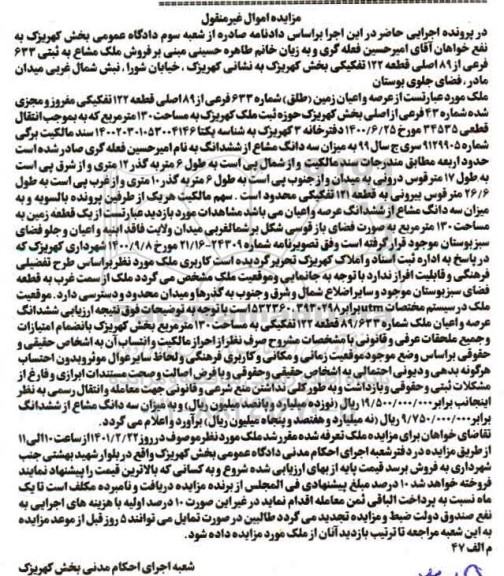 مزایده اموال غیرمنقول
در پرونده اجرایی حاضر در این اجرا براساس دادنامه صادره از شعبه سوم دادگاه عمومی بخش کهریزک به
نفع خواهان آقای امیرحسین فعله گری و به زیان خانم طاهره حسینی مبنی بر فروش ملک مشاع به ثبتی ۶۳۳
فرعی از ۸۹ اصلی قطعه ۱۲۲ تفکیکی بخش کهریزک به نشانی کهریزک ، خیابان شورا ، نبش شمال غربی میدان
مادر ، فضای جلوی بوستان
ملک مورد عبارتست از عرصه و اعیان زمین (طلق) شماره ۶۳۳ فرعی از ۸۹ اصلی قطعه ۱۲۲ تفکیکی مفروز و مجزی
شده شماره ۴۳ فرعی از اصلی بخش کهریزک حوزه ثبت ملک کهریزک به مساحت ۱۳۰ مترمربع که به موجب انتقال
قطعی ۳۴۵۳۵ مورخ ۱۴۰۰/۶/۲۵ دفترخانه ۳ کهریزک به شناسه یکتا ۱۴۰۰۲۰۳۰۱۰۵۳۰۰۴۱۴۶ سند مالکیت برگی
شماره ۹۱۲۹۹۰۵ سری ج سال ۹۹ به میزان سه دانگ مشاع از ششدانگ به نام امیرحسین فعله گری صادر شده است
حدود اربعه مطابق مندرجات سند مالکیت و از شمال پی است به طول ۶ متر به گذر ۱۲ متری و از شرق پی است
به طول ۱۷ متر قوس درونی به میدان و از جنوب پی است به طول ۶ متر به گذر ۱۰ متری و از غرب پی است به طول
۲۶/۶ متر قوس بیرونی به قطعه ۱۲۱ تفکیکی محدود است . سهم مالکیت هریک از طرفین پرونده بالسویه و به
میزان سه دانگ مشاع از ششدانگ عرصه و اعیان می باشد مشاهدات مورد بازدید عبارتست از یک قطعه زمین به
مساحت ۱۳۰ متر مربع به صورت فضای باز قوسی شکل بر شمالغربی میدان ولایت فاقد ابنیه و اعیان و جلو فضای
سبز بوستان موجود قرار گرفته است وفق تصویرنامه شماره ۲۱/۱۶-۲۴۳۰۹ مورخ ۱۴۰۰/۹/۸ شهرداری کهریزک که
در پاسخ به اداره ثبت اسناد و املاک کهریزک تحریر گردیده است کاربری ملک مورد نظر براساس طرح تفضیلی
فرهنگی و قابلیت افراز ندارد با توجه به جانمایی وموقعیت ملک مشخص می گردد ملک از سمت غرب به قطعه
فضای سبز بوستان موجود و سایر اضلاع شمال و شرق و جنوب به گذرها و میدان محدود و دسترسی دارد . موقعیت
ملک در سیستم مختصات utm برابر است با توجه به توضیحات فوق نتیجه ارزیابی ششدانگ
عرصه و اعیان ملک شماره ۸۹/۶۳۳ قطعه ۱۲۲ تفکیکی به مساحت ۱۳۰ مترمربع بخش کهریزک بانضمام امتیازات
و جمیع ملحقات عرفی و قانونی با مشخصات مشروح صرف نظر از احراز مالکیت و انتساب آن به اشخاص حقیقی و
حقوقی براساس وضع موجود موقعیت زمانی و مکانی و کاربری فرهنگی و لحاظ سایر عوامل موثر و بدون احتساب
هرگونه بدهی و دیونی احتمالی به اشخاص حقیقی و حقوقی و با فرض اصالت و صحت مستندات ابرازی و فارغ از
مشکلات ثبتی و حقوقی و بازداشت و به طور کلی نداشتن منع شرعی و قانونی جهت معامله و انتقال رسمی به نظر
اینجانب برابر ۱۹/۵۰۰/۰۰۰/۰۰۰ ریال (نوزده میلیارد و پانصد میلیون ریال) و به میزان سه دانگ مشاع از ششدانگ
برابر ۹/۷۵۰/۰۰۰/۰۰۰ ریال (نه میلیارد و هفتصد و پنجاه میلیون ریال) برآورد و اعلام می گردد.
تقاضای خواهان برای مزایده ملک تعرفه شده مقرر شد ملک مورد نظر موصوف در روز ۱۴۰۱/۲/۲۲ از ساعت ۱۰ الی ۱۱
از طریق مزایده در دفتر شعبه اجرای احکام مدنی دادگاه عمومی بخش کهریزک واقع در بلوار شهید بهشتی جنب
شهرداری به فروش برسد قیمت پایه از بهای ارزیابی شده شروع و به کسانی که بالاترین قیمت را پیشنهاد نمایند
فروخته خواهد شد ۱۰ درصد مبلغ پیشنهادی فی المجلس از برنده مزایده دریافت و نامبرده مکلف است تا یک
ماه نسبت به پرداخت الباقی ثمن معامله اقدام نماید در غیر این صورت ۱۰ درصد اولیه با هزینه های اجرایی به
نفع صندوق دولت ضبط و مزایده تجدید می گردد طالبین در صورت تمایل می توانند ۵ روز قبل از موعد مزایده
به این شعبه مراجعه تا ترتیب بازدید آنان از ملک مورد مزایده داده شود .
م الف ۴۷
شعبه اجرای احکام مدنی بخش کهریزک